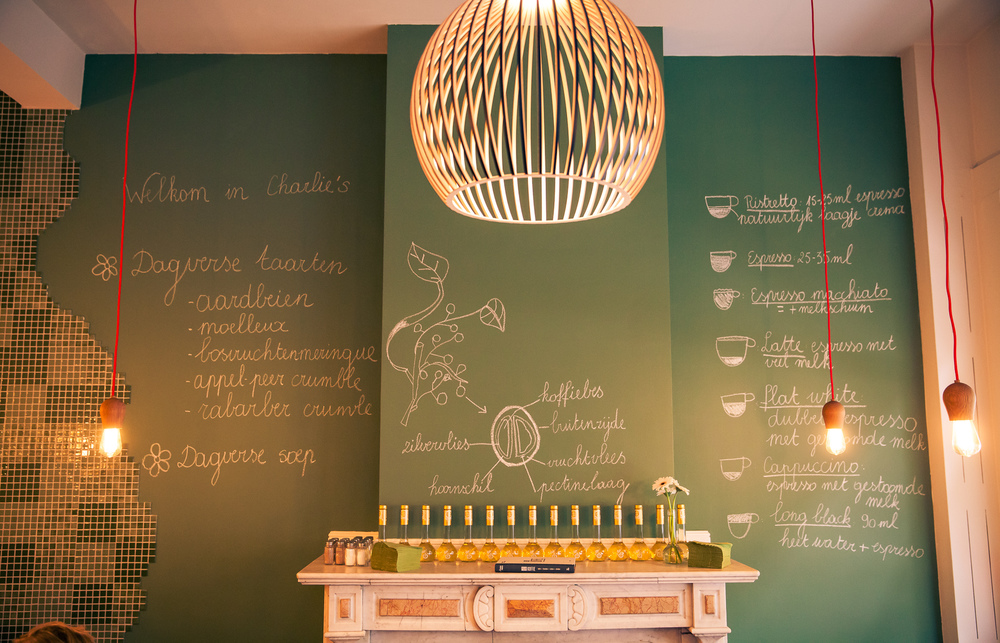 Welkom in Charlie's
Dagverse taarten
- aardbeien
- moelleux
- bosvruchtenmeringue
- appel-peer crumble
- rabarber crumble
Dagverse soep
koffiebes
buitenzijde
zilvervlies
vruchtvlees
hoornschil
pectinelaag
Ristretto: 15-25ml espresso
natuurlijk laagje crema
Espresso 25-35ml
Espresso macchiato
= + melkschuim
Latte espresso met
veel melk
flat white
dubbele espresso
met gestoomde melk
Cappuccino:
espresso met gestoomde
melk
long black 90ml
heet water + espresso